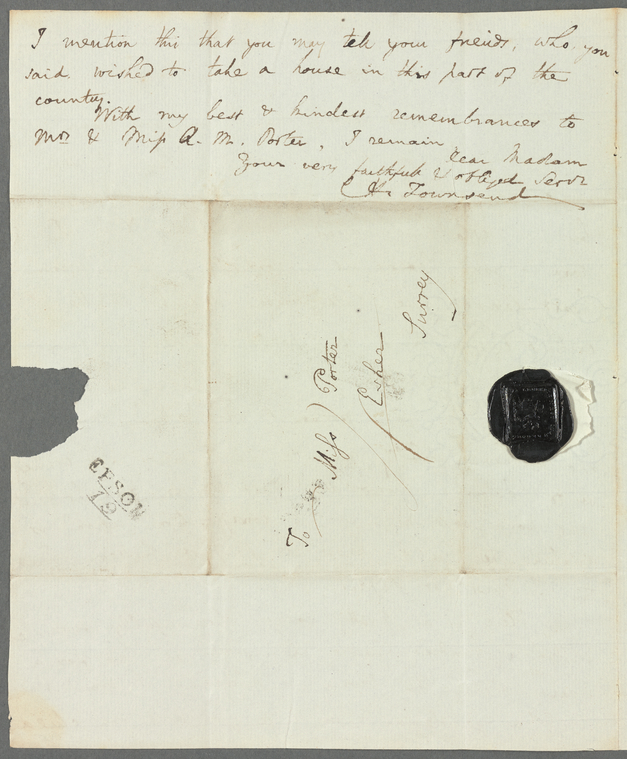 I mention this that you may tell your friends, who, you
said wished to take a house in this part of the
country.
With my best & kindest remembrances to
Mrs & Miss A. M. Porter, I remain
Dear Madam
Your very faithful & obliged Servt
Chs Townsend
To
Miss Porter
Esher
Surrey
EPSOM
19